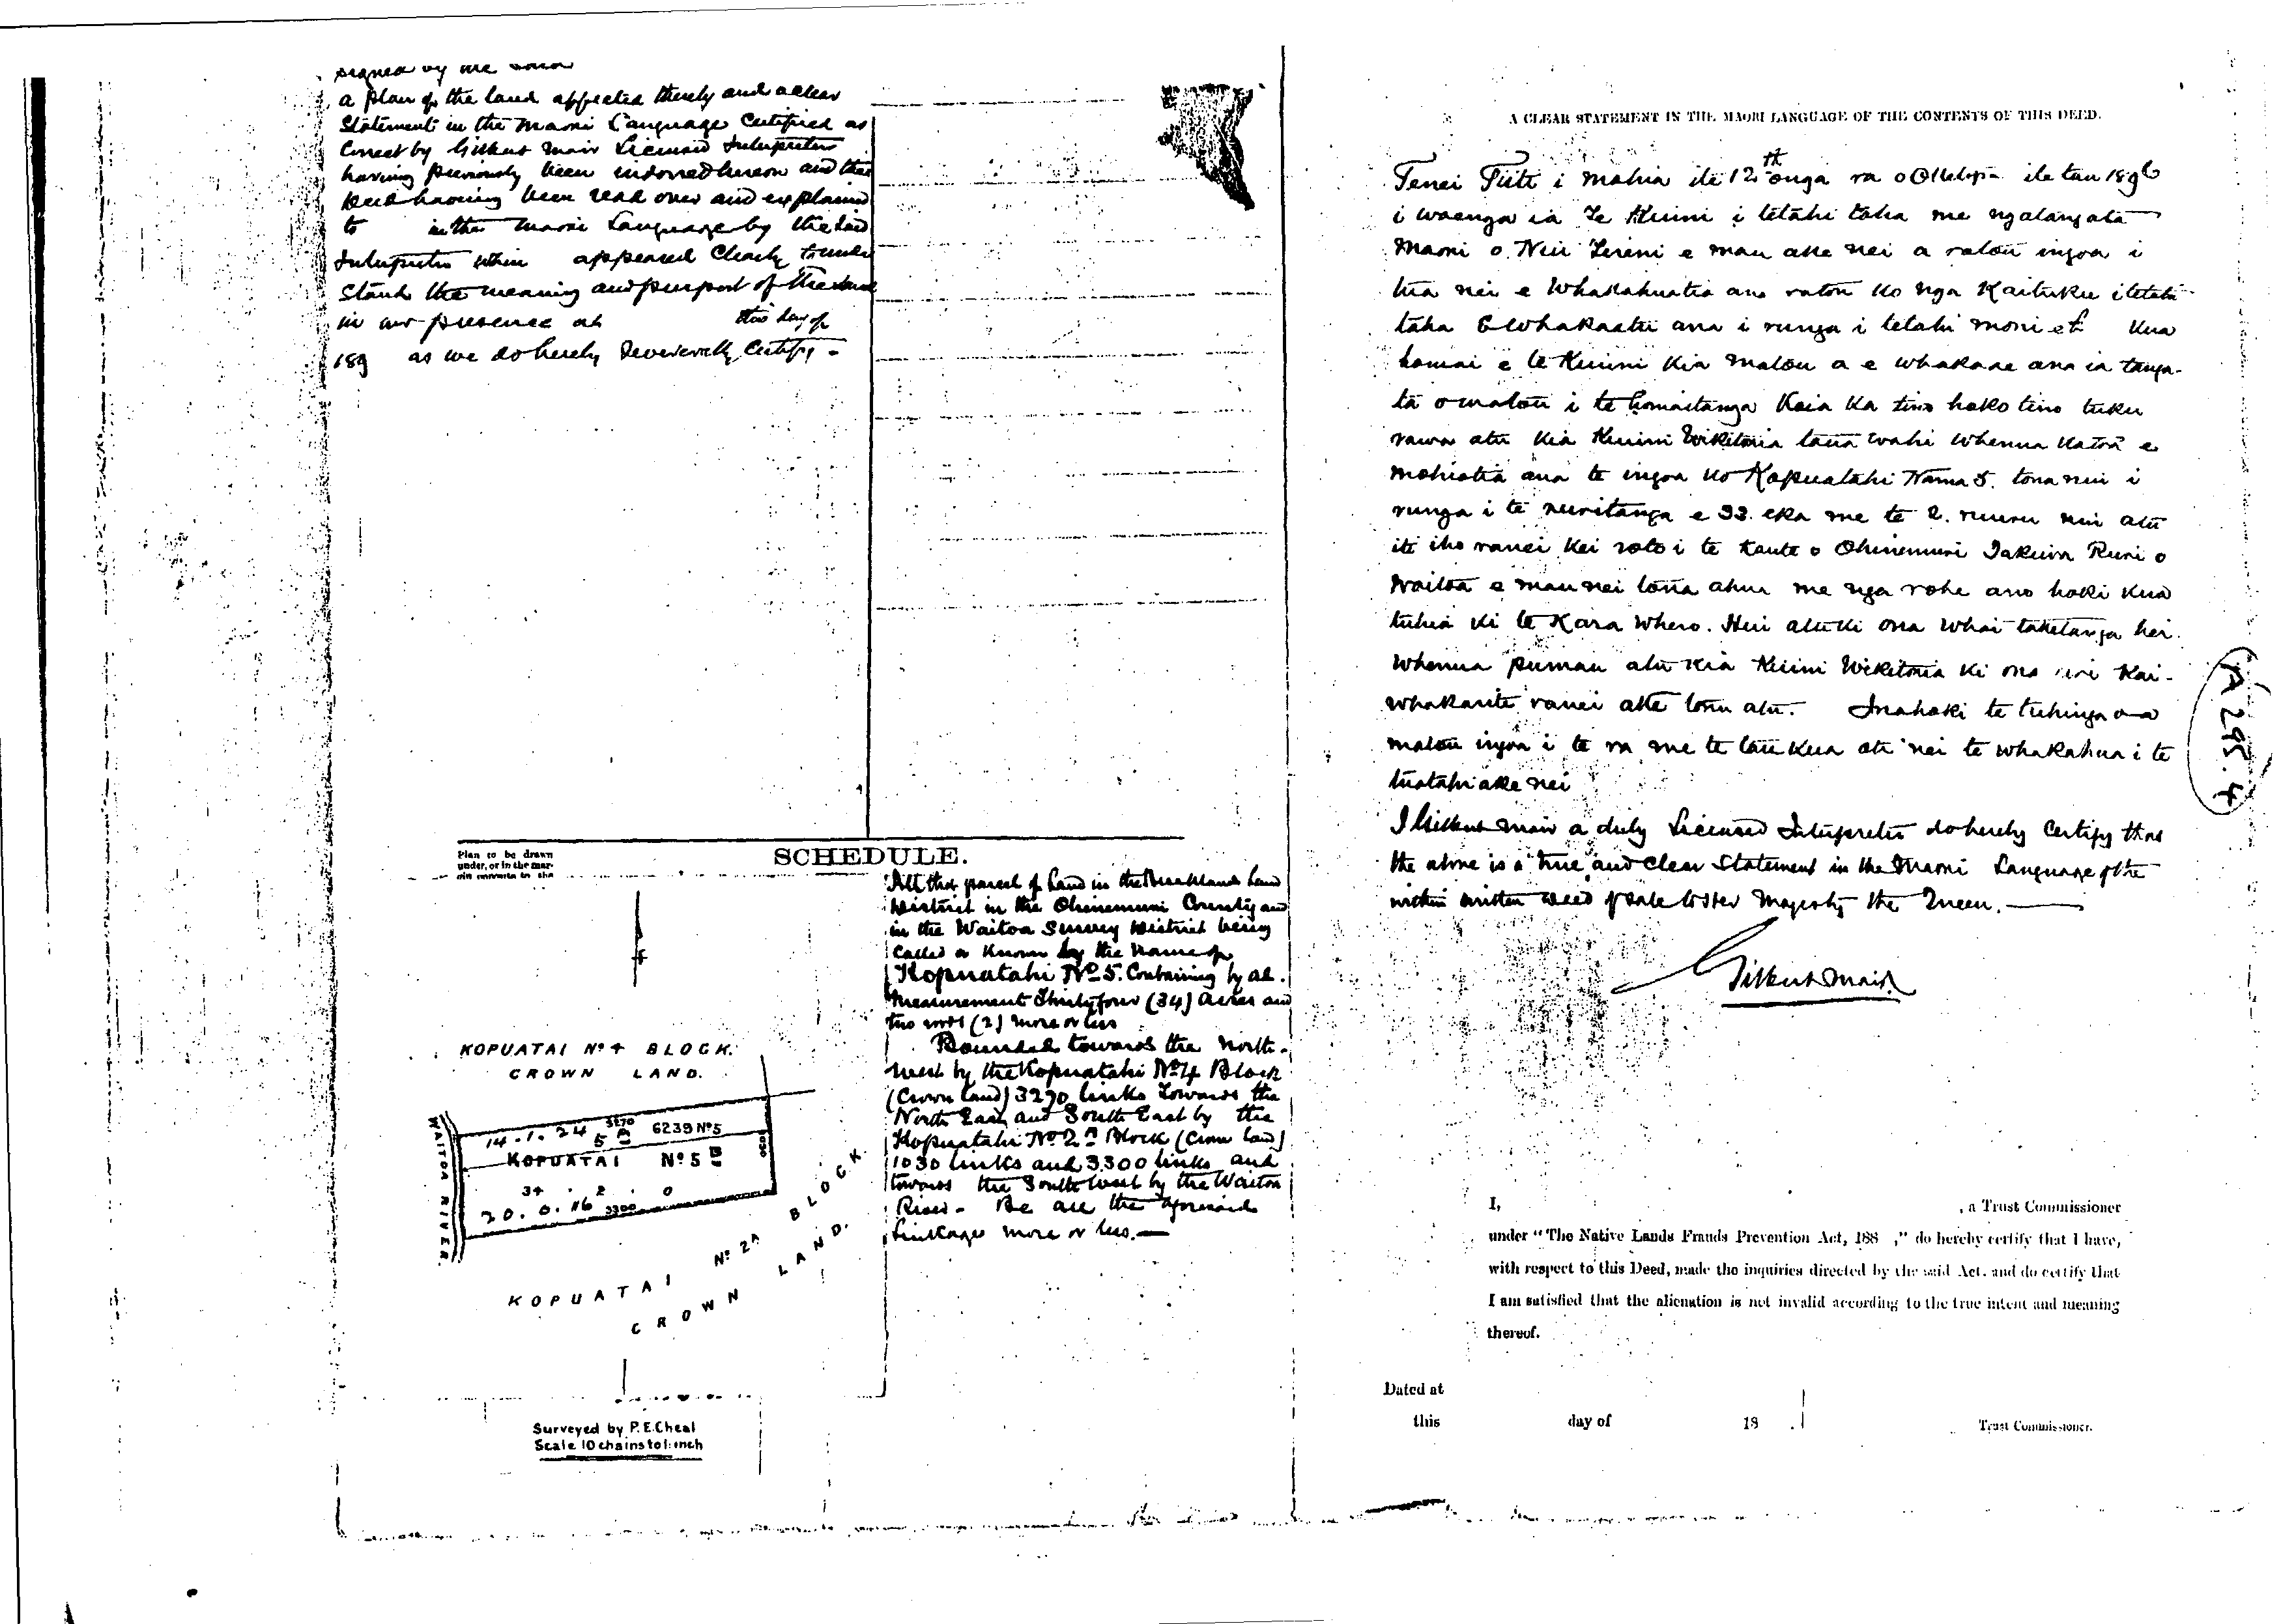 signed by me
a plan of the land affected thereby and a clear
Statement in the Maori Language Certified as
Correct by Gilbert Mair Licensed Interpreter
having previously been indorsed hereon and this
Deed having been read over and explained
to in the Maori Language by the said
Interpreter when appeared Clearly to under
stand the meaning and purport of the same
in our presence at this day of
189 as we do hereby Severally Certify -
Plan to be drawn
under, or in the mar-
SCHEDULE.
All that parcel of Land in the Auckland Land
District in the Ohinemuri County and
in the Waitoa Survey District being
Called or Known by the Name of
Kopuatahi No 5. Containing by ad.
measurement Thirty four (34) Acres and
two roods (2) more or less
Bounded towards the North-
West by the Kopuatahi No 4 Block
(Crown Land) 3270 links Towards the
North East and South East by the
Kopuatahi No 2A Block (Crown land)
1030 links and 3300 links and
towards the South West by the Waitoa
River - Be all the aforesaid
Linkages more or less.—
KOPUATAI No 4 BLOCK.
CROWN LAND.
WAITOA RIVER
14. 1. 24 3270
5 A 6239 No 5
KOPUATAI No 5 B
1030
34 . 2 . 0
20. 0. 16 3300
KOPUATAI No 2A BLOCK.
CROWN LAND.
Surveyed by P. E. Cheal
Scale 10 chains to 1 inch
A CLEAR STATEMENT IN THE MAORI LANGUAGE OF THE CONTENTS OF THIS DEED.
Tenei Tiiti i mahia i te 12th o nga ra o Oketopa i te tau 1896
i waenga i a Te Kuini i tetahi taha me nga tangata
Maori o Niu Tireni e mau ake nei a ratou ingoa i
hia nei e Whakahuatia ana ratou ko nga Kaituku i tetahi
taha E whakaatu ana i runga i tetahi moni Kua
homai e te Kuini Kia Matou a e whakaae ana ia tanga-
ta o matou i te homaitanga Koia Ka tino hoko tino tuku
rawa atu Kia Kuini Wikitoria taua wahi whenua katoa e
Mohiotia ana te ingoa ko Kopuatahi Nama 5. tona nui i
runga i te ruritanga e 33. eka me te 2. ruuru nui atu
iti iho ranei Kei roto i te Kaute o Ohinemuri Takiwa Ruri o
Waitoa e mau nei tona ahua me nga rohe ano hoki Kua
tuhia ki te Kara whero. Hui atu ki ona whai taketanga hei
whenua pumau atu kia Kuini Wikitoria ki ona uri Kai-
whakarite ranei ake tonu atu. Inahoki te tuhinga o a
matou ingoa i te ra me te tau Kua oti nei te whakahua i te
tuatahi ake nei
I Gilbert Mair a duly Licensed Interpreter do hereby Certify that
the above is a true and Clear Statement in the Maori Language of the
within written Deed of Sale to Her Majesty the Queen. —
Gilbert Mair.
A 295.4
I, , a Trust Commissioner
under "The Native Lands Frauds Prevention Act, 188 ," do hereby certify that I have,
with respect to this Deed, made the inquiries directed by the said Act. and do certify that
I am satisfied that the alienation is not invalid according to the true intent and meaning
thereof.
Dated at
this day of 18 . Trust Commissioner.